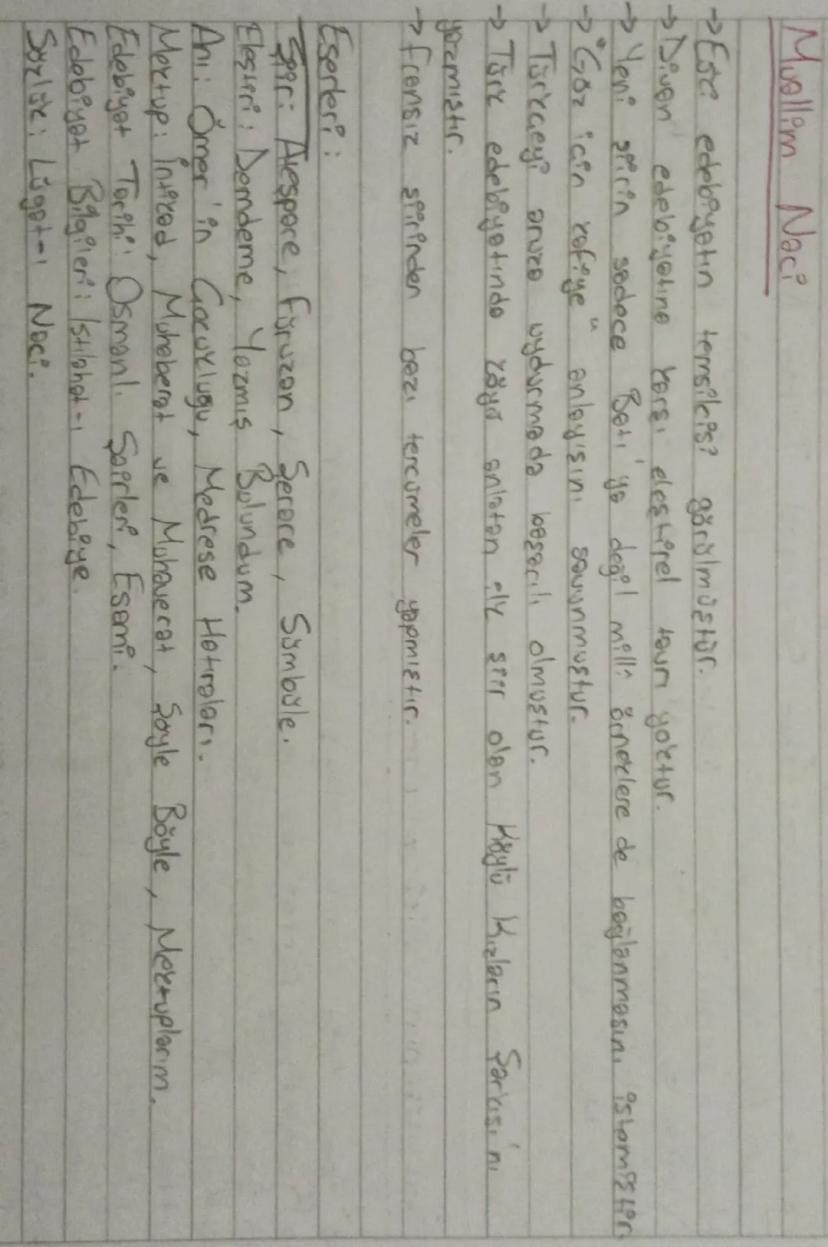 Muallim Naci
→ Eski edebiyatın temsilcisi görülmüştür.
→ Divan edebiyatına karşı eleştirel tavrı yoktur.
→ Yeni şiirin sadece Batı'ya değil milli örneklere de bağlanmasını istemiştir.
→ "Göz için kafiye" anlayışını savunmuştur.
→ Türkçeyi aruza uydurmada başarılı olmuştur.
→ Türk edebiyatında köyü anlatan ilk şiir olan Köylü Kızların Şarkısı'nı
yazmıştır.
→ Fransız şiirinden bazı tercümeler yapmıştır.
Eserleri:
Şiir: Ateşpare, Füruzan, Şerare, Sümbüle.
Eleştiri: Demdeme, Yazmış Bulundum.
Anı: Ömer'in Çocukluğu, Medrese Hatıraları.
Mektup: İntikad, Muhaberat ve Muhaverat, Şöyle Böyle, Mektuplarım.
Edebiyat Tarihi: Osmanlı Şairleri, Esami.
Edebiyat Bilgileri: Istılahat-ı Edebiye
Sözlük: Lügat-ı Naci.